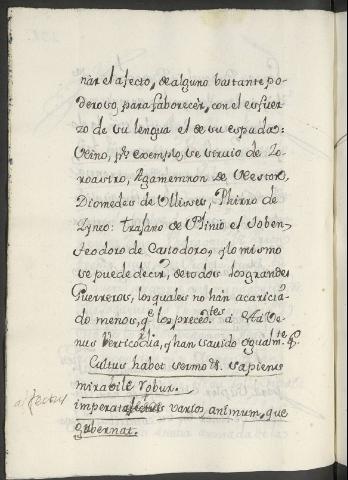 nár el afecto, de alguno bastante po-
deroso, para faborecér, con el esfuer-
zo de su lengua el de su espada:
Nino, pr. exemplo, se servio de Zo-
roastro, Agamemnon de Nestor,
Diomedes de Ullisses, Phirro de
Zyneo: Trajano de Plinio el Joben,
teodoro de Casiodoro, y lo mismo
se puede decir, de todos los grandes
Guerreros, los quales no hán acaricia-
do menos, q.e los precedtes. á Vra Ve-
nus Verticodia, q. han savido ygualmte. q.
Cultus habet sermo et sapiens
mirabile robur.
imperat afectus varios, animum, que
gubernat.
affectus